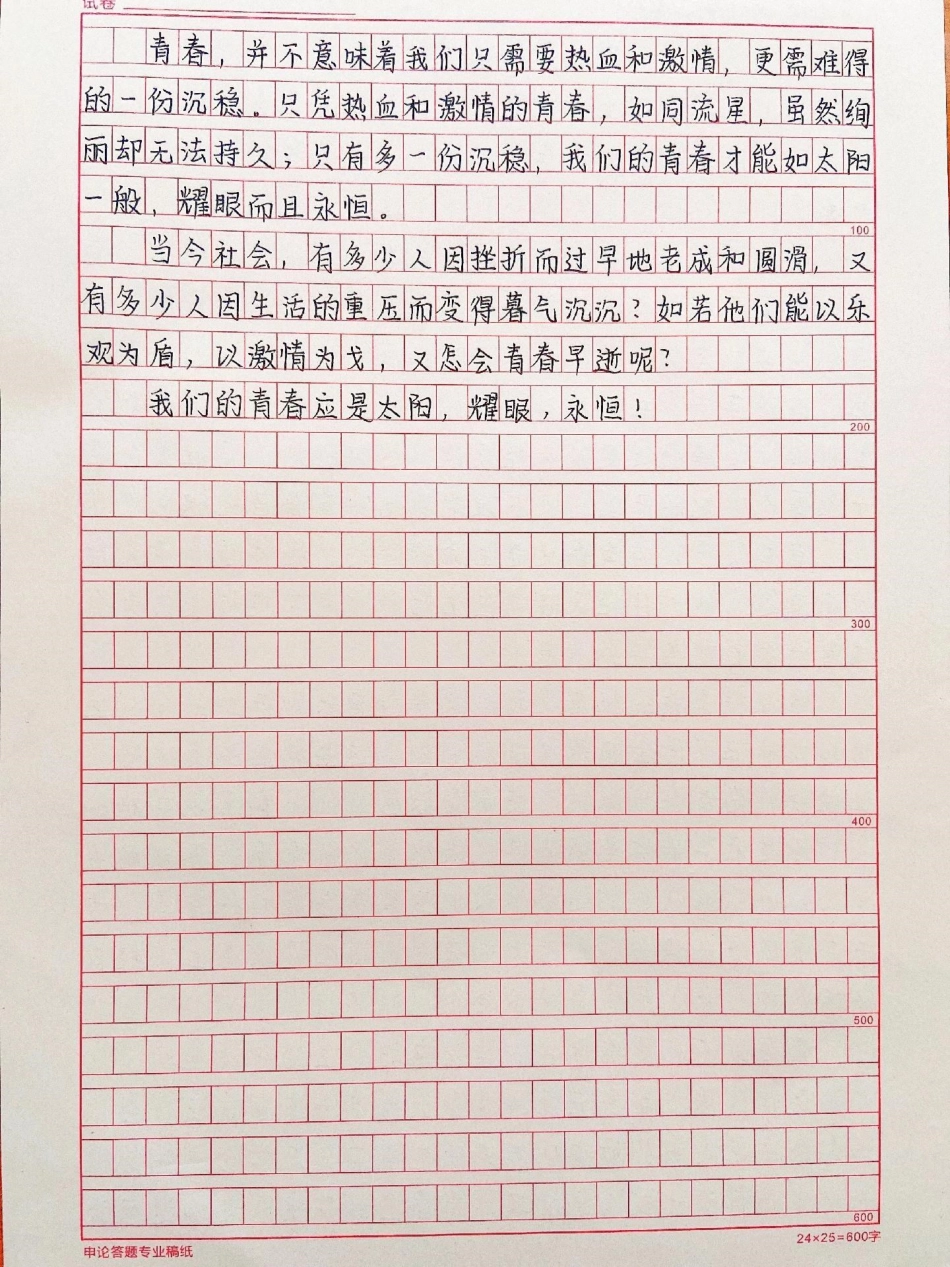 试卷
青春，并不意味着我们只需要热血和激情，更需难得
的一份沉稳。只凭热血和激情的青春，如同流星，虽然绚
丽却无法持久；只有多一份沉稳，我们的青春才能如太阳
一般，耀眼而且永恒。
100
当今社会，有多少人因挫折而过早地老成和圆滑，又
有多少人因生活的重压而变得暮气沉沉？如若他们能以乐
观为盾，以激情为戈，又怎会青春早逝呢？
我们的青春应是太阳，耀眼，永恒！
200
300
400
500
600
申论答题专业稿纸
24×25=600字